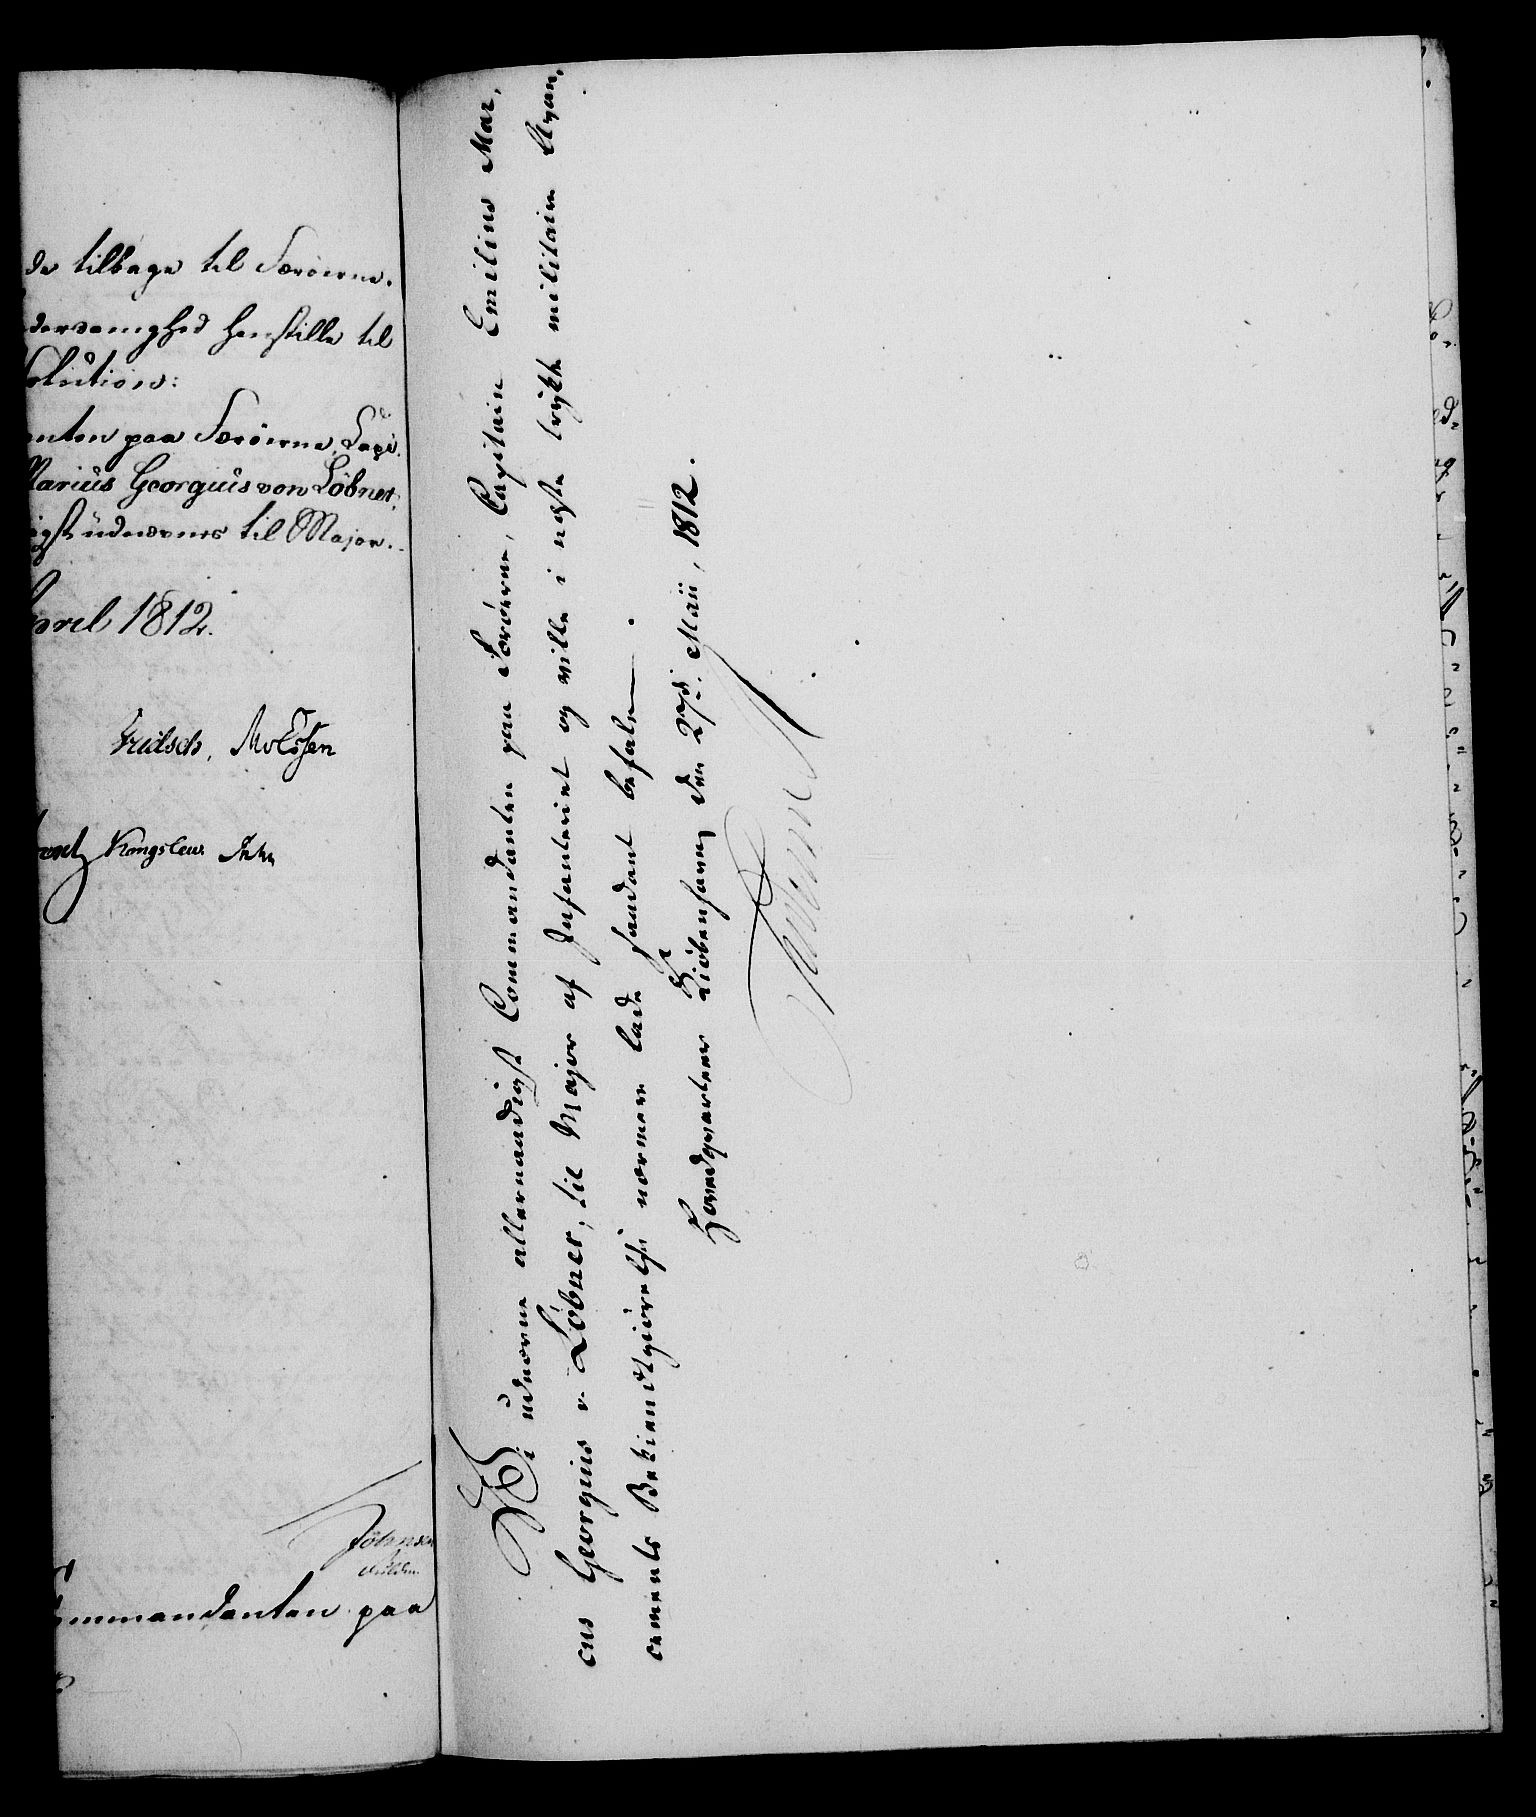 de tilbage til Færøerne.
derdanighed henstille til
solution:
anten paa Færøerne, Capi-
Marius Georgius von Löbner,
igst udnævnes til Major.
April 1812.
Fritsch, MvEssen
Kongslew
Johnsen
Commandanten paa
Vi udnævne allernaadigst Commandanten paa Færøerne, Capitain Emilius Mar,
cus Georgius v. Löbner, til Major af Infanteriet og ville i næste trykte militaire Avan,
cements Bekiendtgiörelse nærmere lade saadant befale.
Hovedqvarteer Kiöbenhavn, den 27d. Maii, 1812.
Frederik R